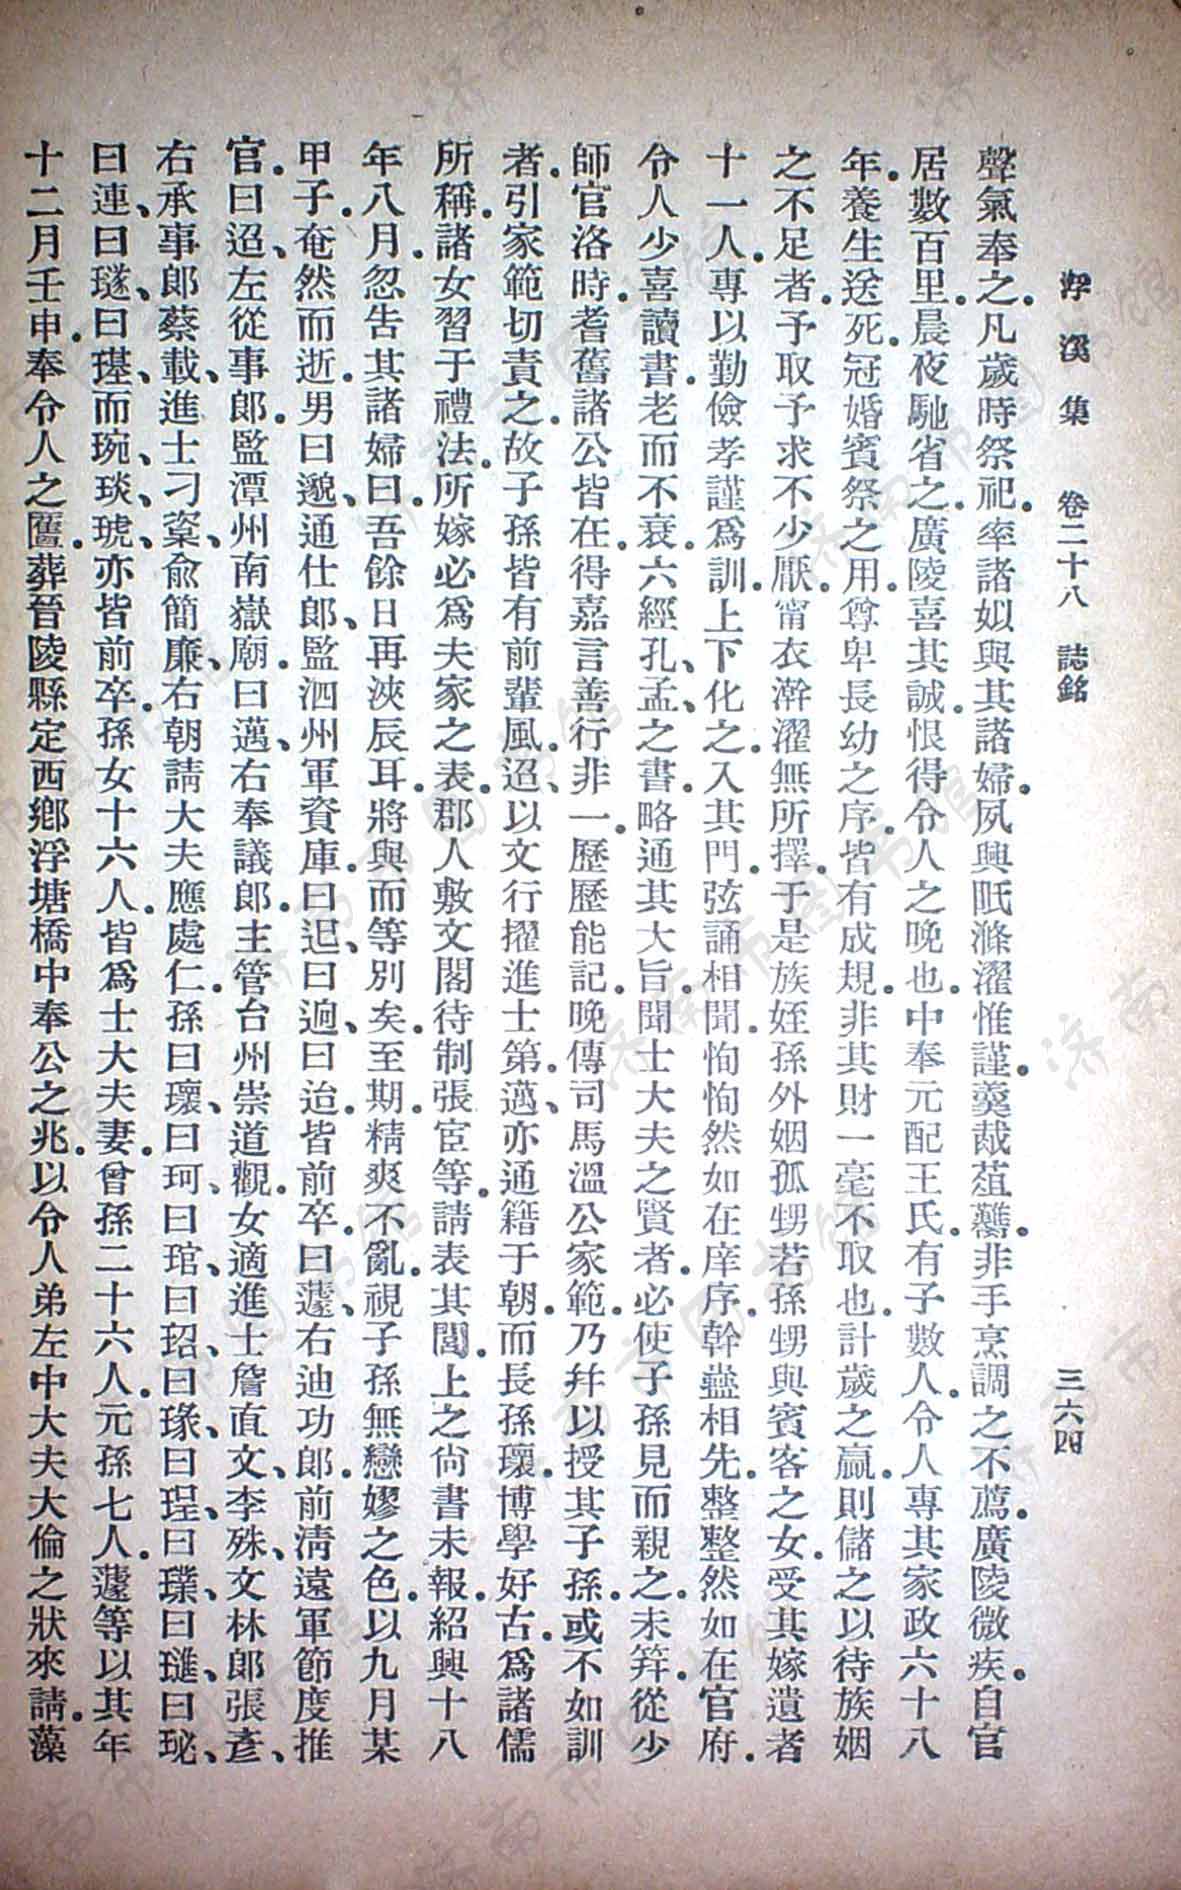 浮溪集 卷二十八 誌銘 三六四
聲氣奉之。凡歲時祭祀。率諸姒與其諸婦。夙興眂滌濯惟謹。羹胾葅虀。非手烹調之不薦。廣陵微疾。自官
居數百里。晨夜馳省之。廣陵喜其誠。恨得令人之晚也。中奉元配王氏。有子數人。令人專其家政六十八
年。養生送死。冠婚賓祭之用。尊卑長幼之序。皆有成規。非其財一毫不取也。計歲之贏。則儲之以待族姻
之不足者。予取予求不少厭。甯衣澣濯無所擇。于是族姪孫外姻孤甥若孫甥與賓客之女。受其嫁遣者
十一人。專以勤儉孝謹爲訓。上下化之。入其門。弦誦相聞。恂恂然如在庠序。幹蠱相先。整整然如在官府。
令人少喜讀書。老而不衰。六經、孔、孟之書。略通其大旨。聞士大夫之賢者。必使子孫見而親之。未笄。從少
師官洛時。耆舊諸公皆在。得嘉言善行非一。歷歷能記。晚傳司馬溫公家範。乃幷以授其子孫。或不如訓
者。引家範切責之。故子孫皆有前輩風。迢、以文行擢進士第。邁、亦通籍于朝。而長孫瓌。博學好古。爲諸儒
所稱。諸女習于禮法。所嫁必爲夫家之表。郡人敷文閣待制張宦等。請表其閭。上之尙書未報。紹興十八
年八月。忽告其諸婦曰。吾餘日再浹辰耳。將與而等別矣。至期。精爽不亂。視子孫無戀嫪之色。以九月某
甲子。奄然而逝。男曰邈、通仕郎、監泗州軍資庫。曰迟、曰逈、曰迨。皆前卒。曰蘧、右迪功郎。前淸遠軍節度推
官。曰迢、左從事郎。監潭州南嶽廟。曰邁、右奉議郎。主管台州崇道觀。女適進士詹直文、李殊、文林郎張彥、
右承事郎蔡載、進士刁寀、兪簡廉、右朝請大夫應處仁。孫曰瓌、曰珂、曰琯、曰玿、曰瑑、曰珵、曰璞、曰璡、曰珌、
曰連、曰璲、曰璂、而琬、琰、琥、亦皆前卒。孫女十六人。皆爲士大夫妻。曾孫二十六人。元孫七人。蘧等以其年
十二月壬申。奉令人之匶。葬晉陵縣定西鄉浮塘橋中奉公之兆。以令人弟左中大夫大倫之狀來請。藻